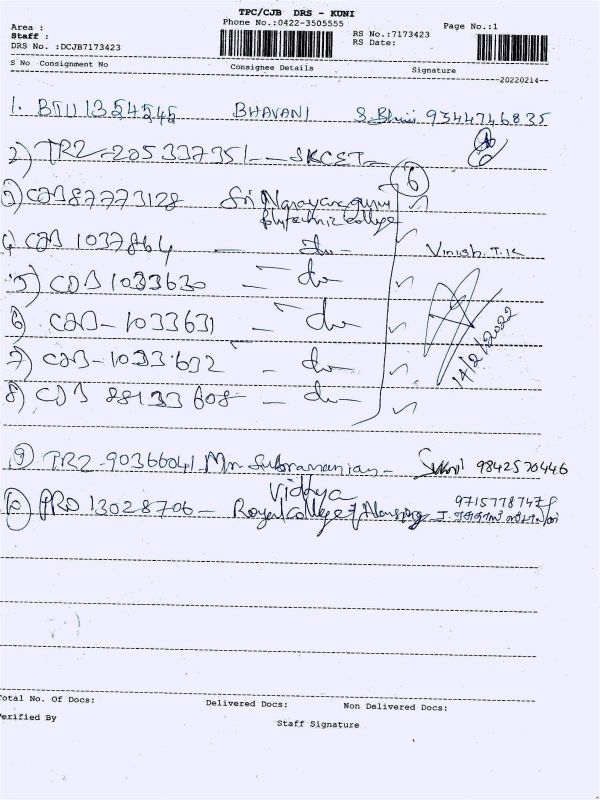 TPC/CJB DRS - KUNI
Area : Phone No.:0422-3505555 Page No.:1
Staff : RS No.:7173423
DRS No. :DCJB7173423 RS Date:
S No Consignment No Consignee Details Signature
20220214
1. BTU 1354545 BHAVANI 9344746835
2) TR2-205337351 - SKCST
3) CJB87773128 Sri Narayanaguru
6
Polytechnic College
4) CJB 1037864 - do - Vinish.T.K
5) CDB 1033630 - do
6) CJB-1033631 - do
14/2/2022
7) CJB-1033632 - do -
8) CJB 88133608 - do -
9) TR2-90366041 Mr Subramanian - 9842570446
Vidhya
10) PRD 13028706 - Royal College of Nursing
Total No. Of Docs: Delivered Docs: Non Delivered Docs:
erified By Staff Signature